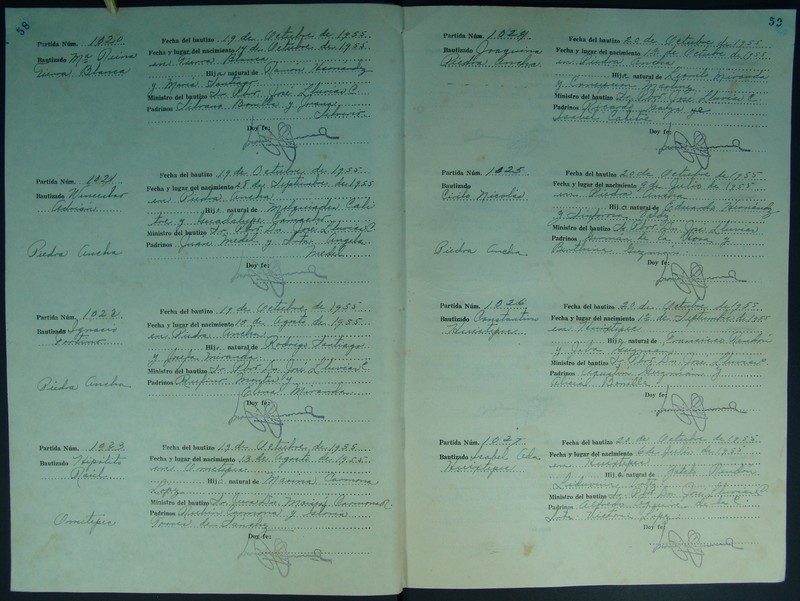 58
Partida Núm. 1920
Bautizado Ma Reina
Tierra Blanca
Fecha del bautizo 19 de Octubre de 1955
Fecha y lugar del nacimiento 7 de Octubre de 1955
en Tierra Blanca
Hija natural de Ramon Hernandez
y Maria Santiago
Ministro del bautizo Sr. Pbro. José Lluvias C.
Padrinos Silvano Bonilla y Juana
Doy fe:
Partida Núm. 1921
Bautizado Wenceslao
Adrian
Piedra Ancha
Fecha del bautizo 19 de Octubre de 1955
Fecha y lugar del nacimiento 28 de Septiembre de 1955
en Piedra Ancha
Hijo natural de
y Guadalupe Camacho
Ministro del bautizo Sr. Pbro. Dn. Jose Lluvias C.
Padrinos Juan Medel y Sota Angela
Medel
Doy fe:
Partida Núm. 1922
Bautizado Ignacio
Piedra Ancha
Fecha del bautizo 19 de Octubre de 1955
Fecha y lugar del nacimiento 10 de Agosto de 1955
en Piedra Ancha
Hijo natural de Rodrigo Santiago
y Josefa Miranda
Ministro del bautizo Sr. Pbro. Dn. Jose Lluvias C.
Padrinos Rufino Montes y
Elena Miranda
Doy fe:
Partida Núm. 1923
Bautizado Hipolito
Raul
Ometepec
Fecha del bautizo 19 de Octubre de 1955
Fecha y lugar del nacimiento 13 de Agosto de 1955
en Ometepec
Hijo natural de Marina Carmona
Lopez
Ministro del bautizo Sr. Guardian Monseñor Carmona R.
Padrinos Carmona y Gloria
de Sanchez
Doy fe:
59
Partida Núm. 1924
Bautizado Joaquina
Piedra Ancha
Fecha del bautizo 20 de Octubre de 1955
Fecha y lugar del nacimiento 12 de Octubre de 1955
en Piedra Ancha
Hija natural de Camilo Miranda
y Concepcion Martinez
Ministro del bautizo Sr. Pbro. Jose Lluvias C.
Padrinos Ricardo
Isabel
Doy fe:
Partida Núm. 1925
Bautizado
Cirilo Nicolas
Piedra Ancha
Fecha del bautizo 20 de Octubre de 1955
Fecha y lugar del nacimiento 9 de Julio de 1955
en Piedra Ancha
Hijo natural de Eduardo Hernandez
y Sinforosa Valdez
Ministro del bautizo Sr. Pbro. Dn. Jose Lluvias
Padrinos Roman de la Rosa y
Guzman
Doy fe:
Partida Núm. 1926
Bautizado Constantino
Huixtepec
Fecha del bautizo 20 de Octubre de 1955
Fecha y lugar del nacimiento 12 de Septiembre de 1955
en Huixtepec
Hijo natural de Francisco Rendon
y Guzman
Ministro del bautizo Sr. Pbro. Dn. Jose Lluvias C.
Padrinos Agustin Guzman y
Bonilla
Doy fe:
Partida Núm. 1927
Bautizado Isabel Ada
Huixtepec
Fecha del bautizo 20 de Octubre de 1955
Fecha y lugar del nacimiento de Julio de 1955
en Huixtepec
Hija natural de Rendon
Ministro del bautizo Sr. Pbro. Dn. Jose Lluvias C.
Padrinos Alfredo de la C.
Sota Victoria Lopez
Doy fe: